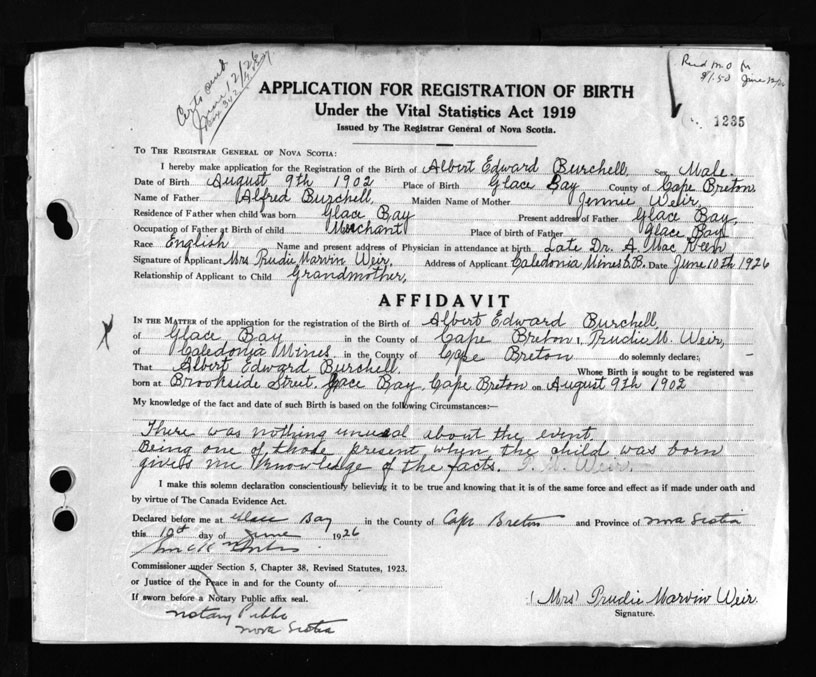 Certs and
June 12/26
Rec'd M.O. M
$1.50 June 12/26
1235
APPLICATION FOR REGISTRATION OF BIRTH
Under the Vital Statistics Act 1919
Issued by The Registrar General of Nova Scotia.
TO THE REGISTRAR GENERAL OF NOVA SCOTIA:
I hereby make application for the Registration of the Birth of Albert Edward Burchell, Sex Male.
Date of Birth August 9th 1902 Place of Birth Glace Bay County of Cape Breton
Name of Father Alfred Burchell, Maiden Name of Mother Jennie Weir,
Residence of Father when child was born Glace Bay Present address of Father Glace Bay,
Occupation of Father at Birth of child Merchant Place of birth of Father Glace Bay
Race English Name and present address of Physician in attendance at birth Late Dr. A. Mac Keen
Signature of Applicant Mrs Prudie Marvin Weir. Address of Applicant Caledonia Mines C.B. Date June 10th 1926
Relationship of Applicant to Child Grandmother,
AFFIDAVIT
IN THE MATTER of the application for the registration of the Birth of Albert Edward Burchell,
of Glace Bay in the County of Cape Breton I, Prudie M. Weir,
of Caledonia Mines, in the County of Cape Breton do solemnly declare:
That Albert Edward Burchell. Whose Birth is sought to be registered was
born at Brookside Street. Glace Bay, Cape Breton on August 9th 1902
My knowledge of the fact and date of such Birth is based on the following Circumstances:—
There was nothing unusal about the event.
Being one of those present when the child was born
gives me knowledge of the facts. P. M. Weir.
I make this solemn declaration conscientiously believing it to be true and knowing that it is of the same force and effect as if made under oath and
by virtue of The Canada Evidence Act.
Declared before me at Glace Bay in the County of Cape Breton and Province of Nova Scotia
this 10th day of June 1926
Commissioner under Section 5, Chapter 38, Revised Statutes, 1923.
or Justice of the Peace in and for the County of
If sworn before a Notary Public affix seal. (Mrs) Prudie Marvin Weir.
Signature.
Notary Public
Nova Scotia